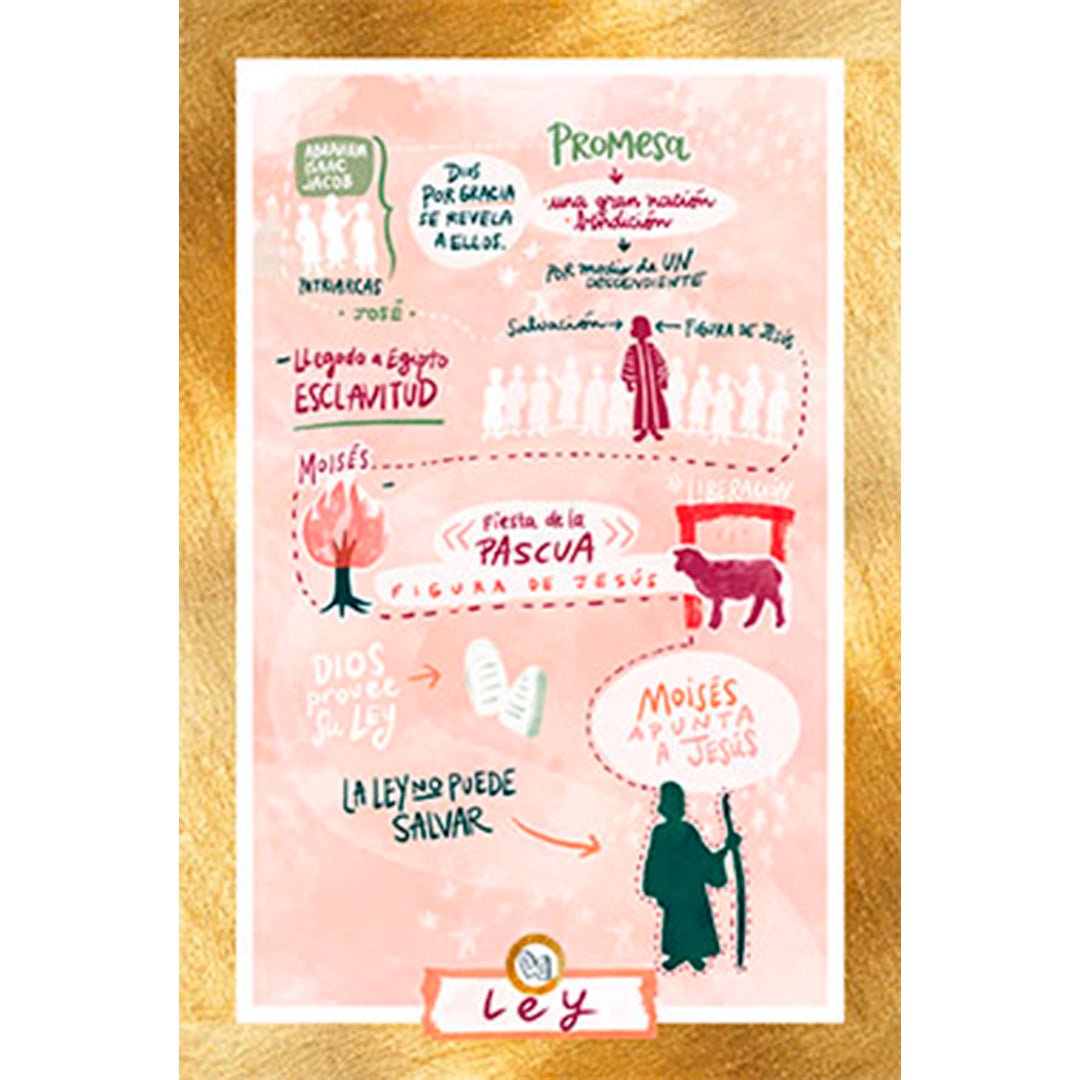 ABRAHAM
ISAAC
JACOB
PATRIARCAS
· JOSÉ ·
DIOS
POR GRACIA
SE REVELA
A ELLOS.
PROMESA
· una gran nación
· bendición
POR medio de UN
DESCENDIENTE
Salvación
FIGURA DE JESÚS
- LLegado a Egipto
ESCLAVITUD
MOISÉS
» LIBERACIÓN
Fiesta de la
PASCUA
FIGURA DE JESÚS
DIOS
provee
su LEY
MOISÉS
APUNTA
A JESÚS
LA LEY NO PUEDE
SALVAR
Ley